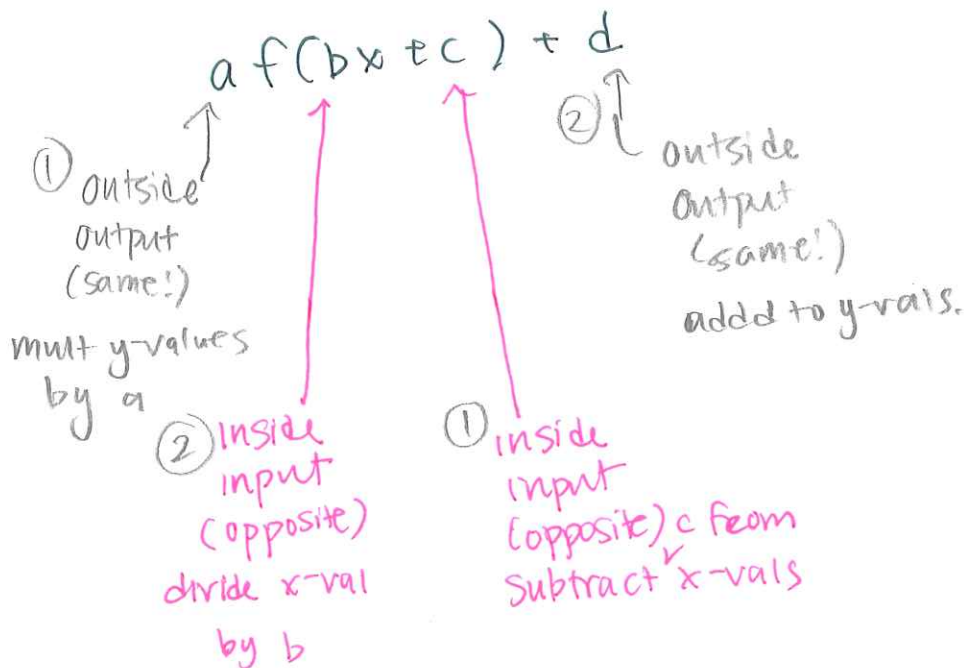 a f(bx + c) + d
① outside
output
(same!)
mult y-values
by a
② outside
output
(same!)
addd to y-vals.
② inside
input
(opposite)
divide x-val
by b
① inside
input
(opposite) c from
subtract ✓ x-vals